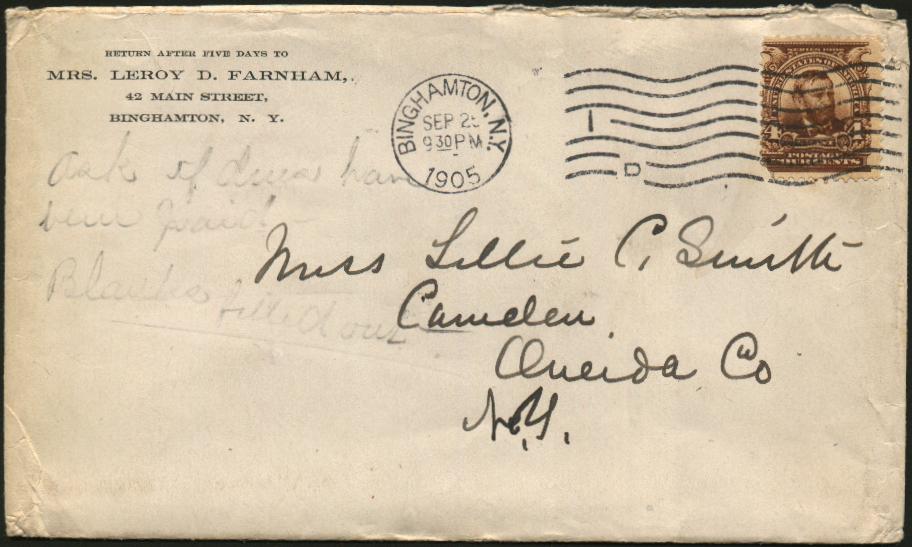 RETURN AFTER FIVE DAYS TO
MRS. LEROY D. FARNHAM,
42 MAIN STREET,
BINGHAMTON, N. Y.
BINGHAMTON, N.Y.
SEP 25
9 30 PM
1905
1
D
SERIES 1902
UNITED STATES OF AMERICA
4 4
POSTAGE
FOUR CENTS
Ask if dues have
been paid -
Blanks filled out
Miss Lillie C. Smith
Camden
Oneida Co
N.Y.